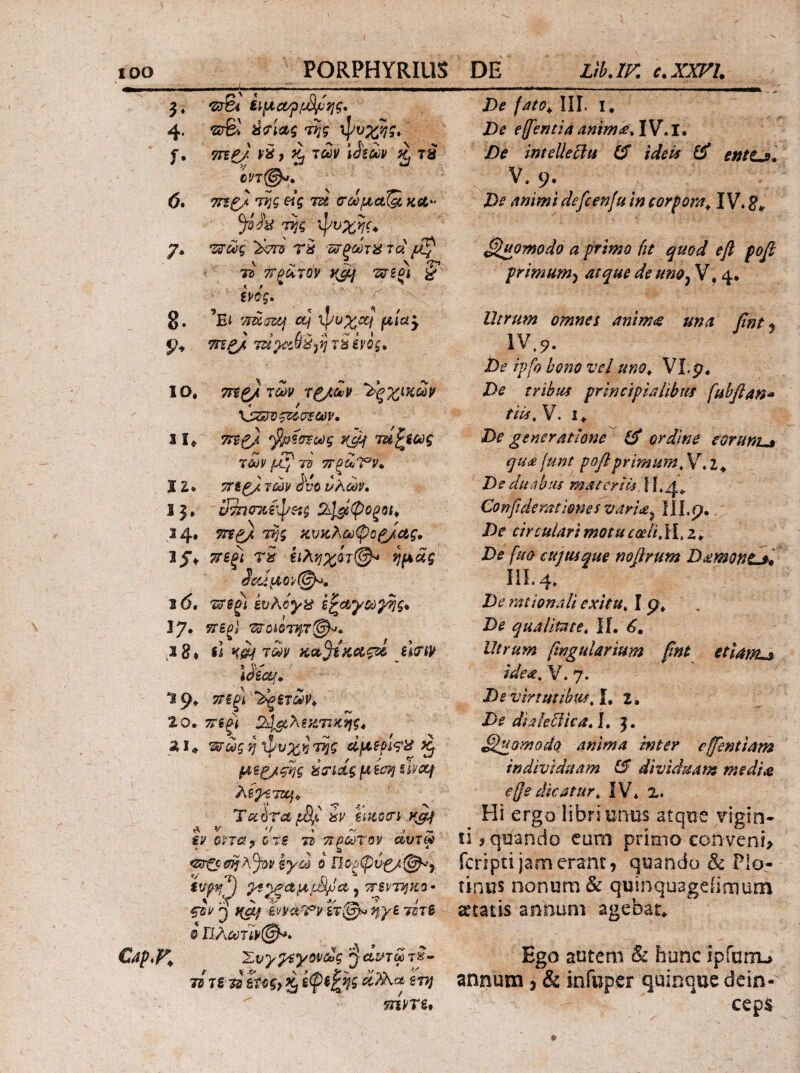 100 PORPHYRIUS DE Lib. IV. c. XXVI.
3. περὶ εἱμαρμένης.
4. περὶ ὐσίας τῆς ψυχῆς.
5. περὶ νȣ͂, καὶ τῶν ἰδεῶν καὶ τȣ͂
ὄντος.
6. περὶ τῆς εἰς τὰ σώματα κα-
θόδȣ τῆς ψυχῆς.
7. πῶς ἀπὸ τȣ͂ πρώτȣ τὰ μετὰ
τὸ πρῶτον καὶ περὶ τȣ͂
ἑνός.
8. Ἐι πᾶσαι αἱ ψυχαὶ μία;
9. περὶ τἀγαθȣ͂, ἢ τȣ͂ ἑνός.
10. περὶ τῶν τριῶν ἀρχικῶν
ὑποστάσεων.
11. περὶ γενέσεως καὶ τάξεως
τῶν μετὰ τὸ πρῶτον.
12. περὶ τῶν δύο ὑλῶν.
13. ἐπισκέψεις διάφοροι.
14. περὶ τῆς κυκλωφορίας.
15. περὶ τȣ͂ εἰληχότος ἡμᾶς
δαίμονος.
16. περὶ ἐυλόγȣ ἐξαγωγῆς.
17. περὶ ποιότητος.
18. εἰ καὶ τῶν καθέκαστά εἰσιν
ἰδέαι.
19. περὶ ἀρετῶν.
20. περὶ διαλεκτικῆς.
21. πῶς ἡ ψυχὴ τῆς ἀμερίστȣ καὶ
μεριστῆς ȣ̓σίας μέση εἶναι
λέγεται.
Ταῦτα μὲν ȣ̓͂ν εἴκοσι καὶ
ἓν ὄντα, ὅτε τὸ πρῶτον ἀυτῷ
προσῆλθον ἐγὼ ὁ Πορφύριος,
ἕυρηται γεγραμμένα, πεντηκο-
στὸν δὲ καὶ ἔννατον ἔτος ἦγε τότε
ὁ Πλωτῖνος.
Cap. V. Συγγεγονὼς δὲ ἀυτῷ τȣ͂-
τό τε τὸ ἔτος, καὶ ἐφεξῆς ἄλλα ἔτη
πέντε.
De fato. III. 1.
De essentia animæ. IV. 1.
De intellectu & ideis & ente.
V. 9.
De animi descensu in corpora. IV. 8.
Quomodo a primo fit quod est post
primum, atque de uno, V. 4.
Utrum omnes animæ una sint,
IV. 9.
De ipso bono vel uno. VI. 9.
De tribus principialibus substan-
tiis. V. 1.
De generatione & ordine eorum
quæ sunt post primum. V. 2.
De duabus materiis. II. 4.
Considerationes variæ, III. 9.
De circulari motu cœli. II. 2.
De suo cujusque nostrum Dæmone.
III. 4.
De rationali exitu. I 9.
De qualitate. II. 6.
Utrum singularium sint etiam
ideæ. V. 7.
De virtutibus. I. 2.
De dialectica. I. 3.
Quomodo anima inter essentiam
individuam & dividuam media
esse dicatur. IV. 2.
Hi ergo libri unus atque vigin-
ti, quando eum primo conveni,
scripti jam erant, quando & Plo-
tinus nonum & quinquagesimum
ætatis annum agebat.
Ego autem & hunc ipsum
annum, & insuper quinque dein-
ceps